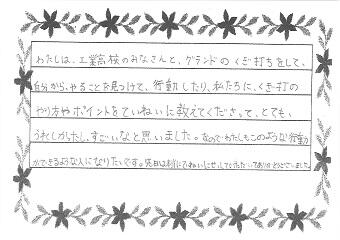 わたしは、工業高校のみなさんと、グランドのくぎ打ちをして、
自分から、やることを見つけて、行動したり、私たちに、くぎ打の
やり方やポイントをていねいに教えてくださって、とても、
うれしかったし、すごいなと思いました。なのでわたしもこのような行動
ができるような人になりたいです。先日は本当にていねいにせっしてくださいありがとうございました。